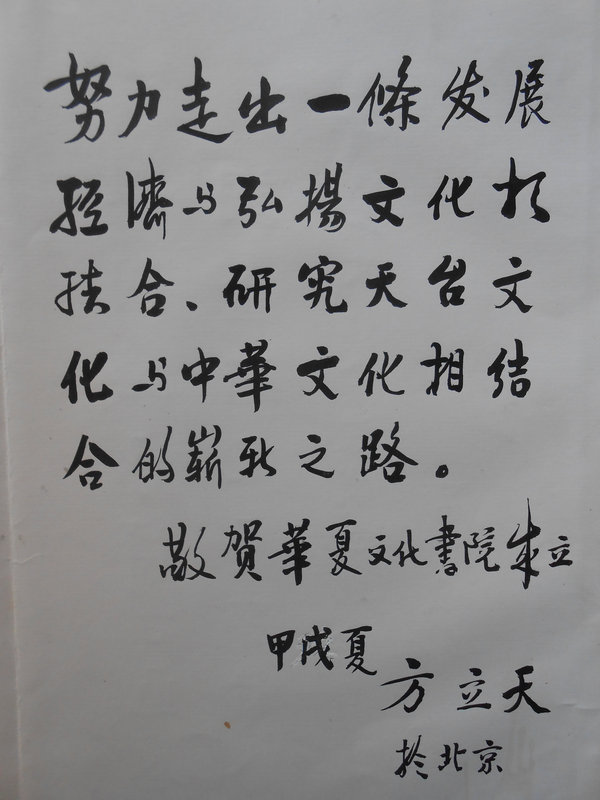 努力走出一條发展
经濟与弘揚文化相
结合、研究天台文
化与中華文化相结
合的嶄新之路。
敬贺華夏文化書院成立
甲戌夏
方立天
於北京